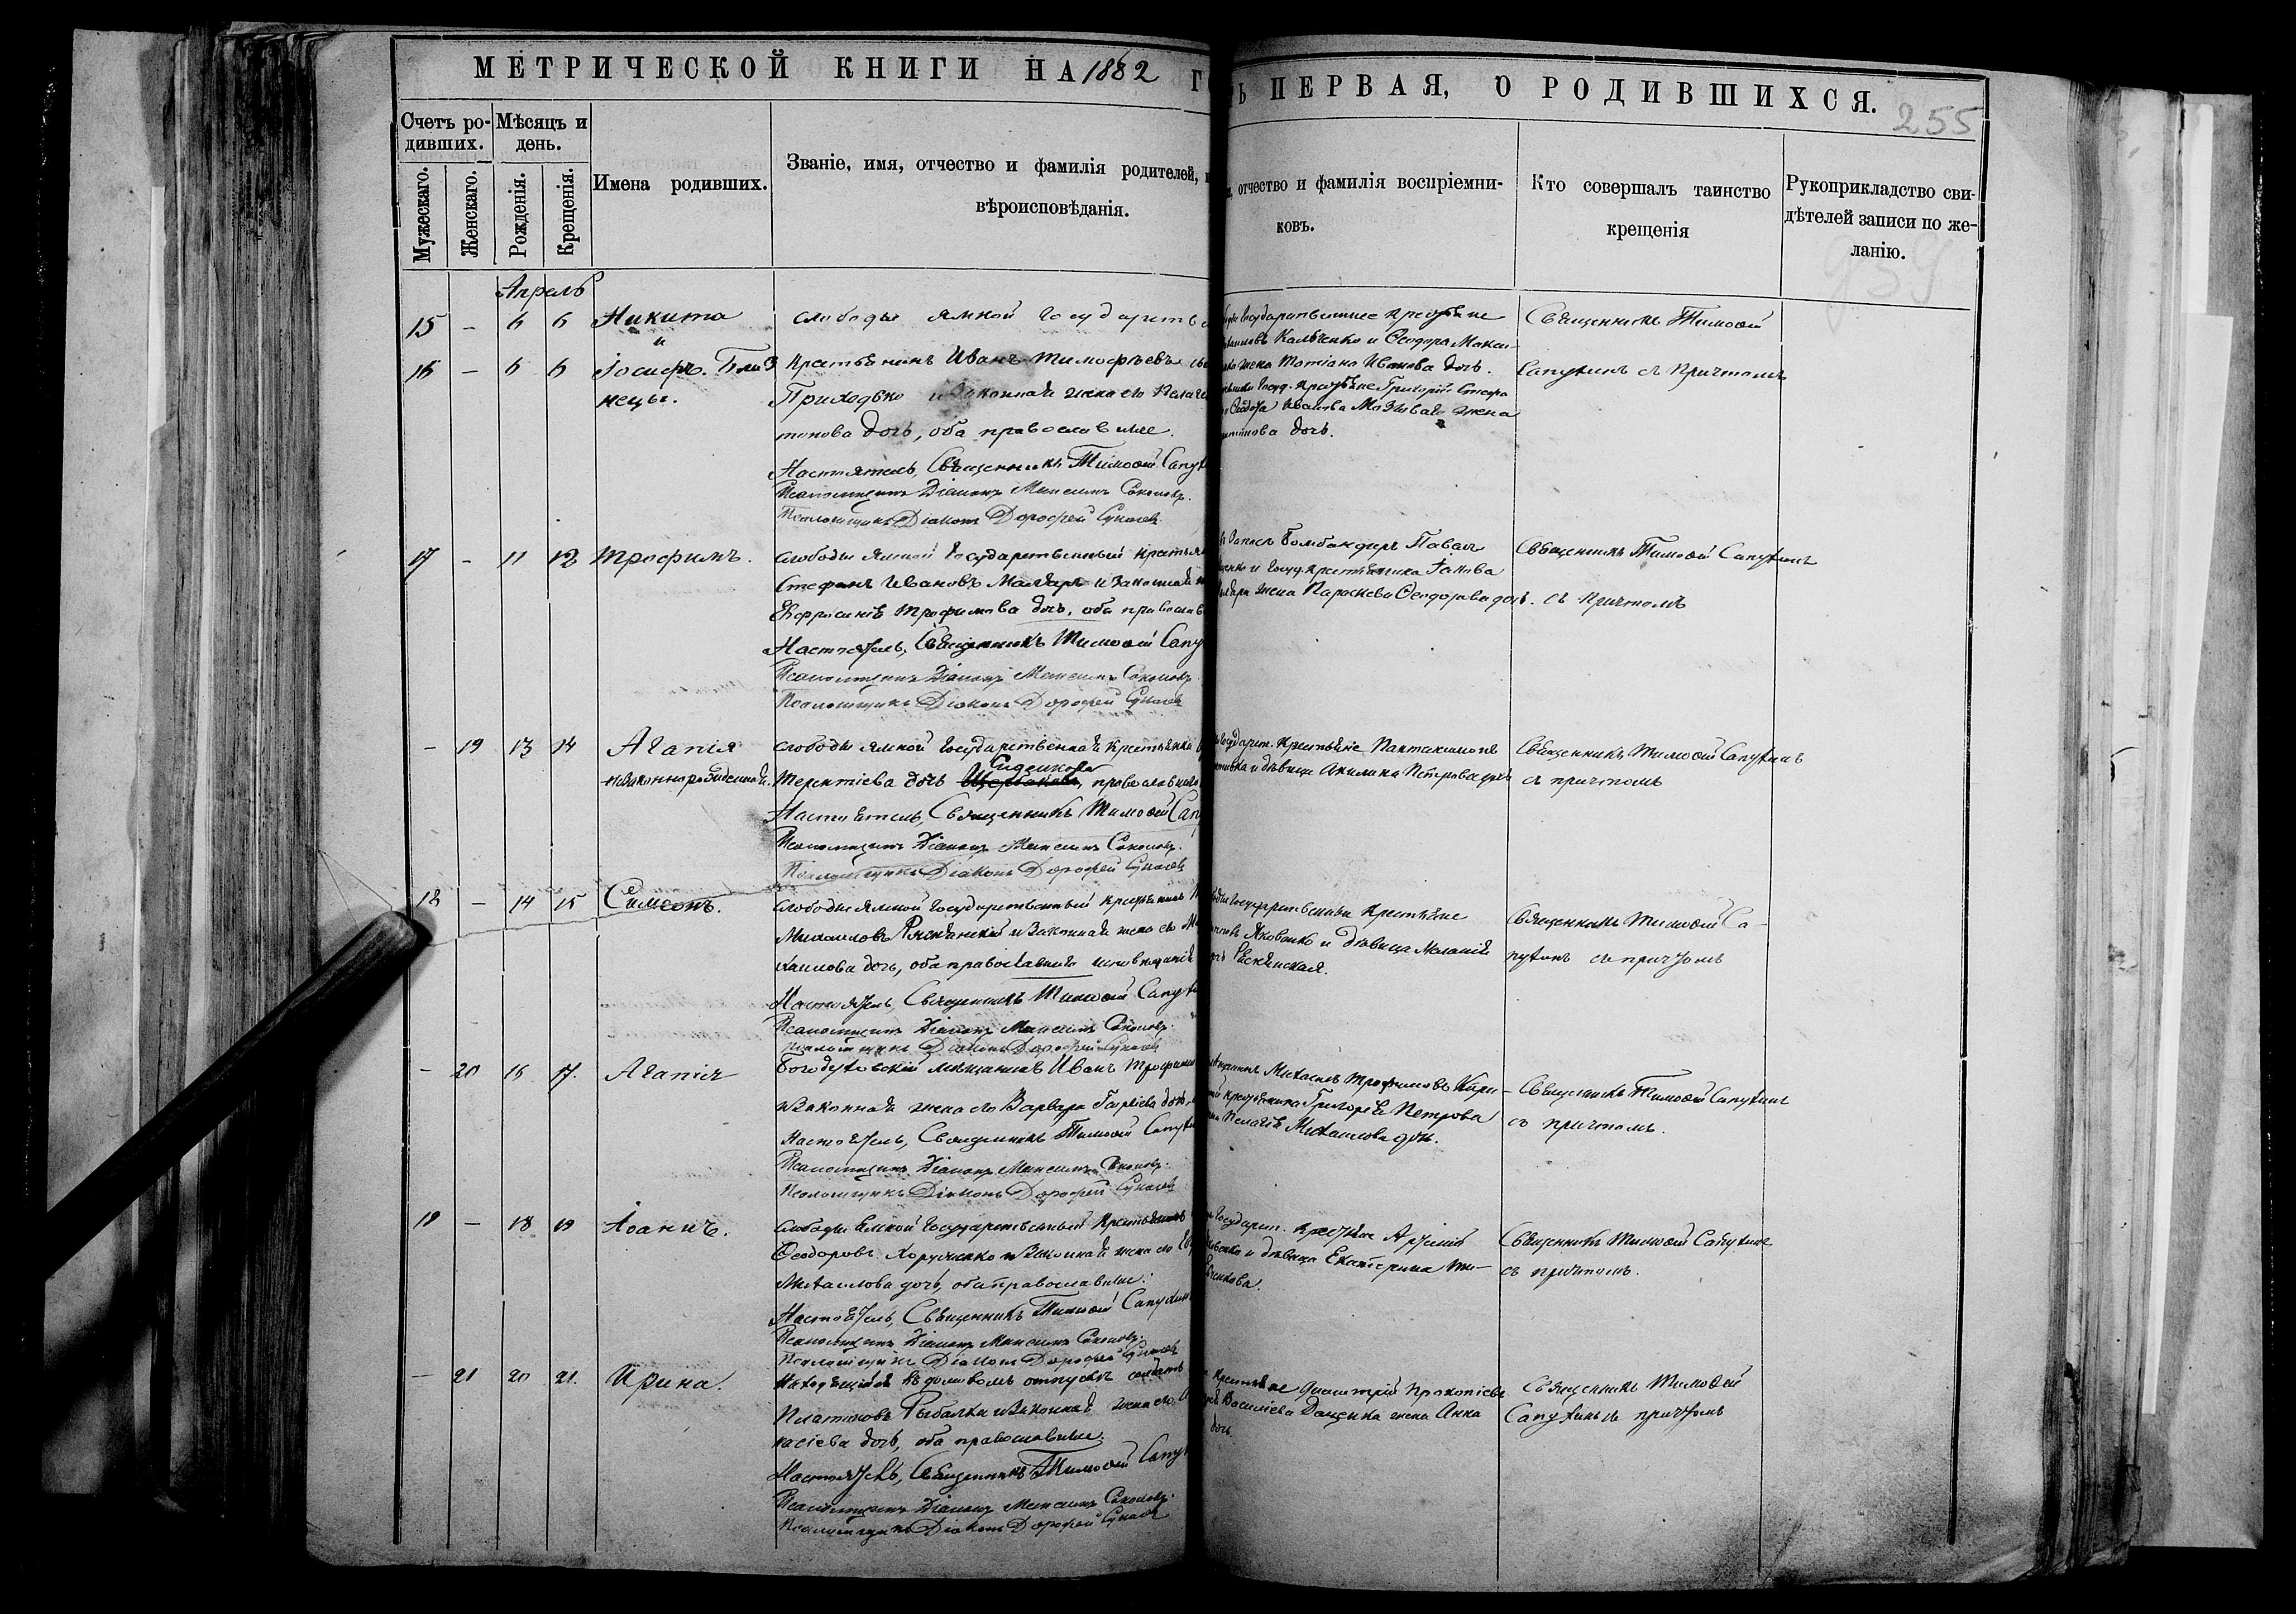 МЕТРИЧЕСКОЙ КНИГИ НА 1882 Г
Ь ПЕРВАЯ, О РОДИВШИХСЯ.
255
Счетъ ро-
дивших.
Мѣсяцъ и
день.
Мужескаго.
Женскаго.
Рожденія.
Крещенія.
Имена родивших.
Званіе, имя, отчество и фамилія родителей,
вѣроисповѣданія.
отчество и фамилія воспріемни-
ковъ.
Кто совершалъ таинство
крещенія
Рукоприкладство сви-
дѣтелей записи по же-
ланію.
Апрель
15 - 6 6 Никита
и
16 - 6 6 Іосифъ. Близ
нецы.
слободы Ямной Государств
Крестьянинъ Иванъ Тимофѣевъ
Приходько и Законная жена его Пелаг
тонова дочь, оба православные.
Настоятель, Священникъ Тимоѳей Сапух
Псаломщикъ Діаконъ Максимъ Соколовъ.
Псаломщикъ Діаконъ Дорофей
Государственные крестьяне
Кальченко и Ѳеодора Макси-
жена Татіана Иванова дочь.
Госуд. крестьяне Григорій Стефа
Ѳеодора Иванова жена
дочь.
Священникъ Тимоѳей
Сапухинъ съ Причтомъ
17 - 11 12 Трофимъ.
слободы Ямной Государственный крестьян
Стефанъ Ивановъ Маляръ и Законная
Евфросинія Трофимова дочь, оба православ
Настоятель, Священникъ Тимоѳей Сапу
Псаломщикъ Діаконъ Максимъ Соколовъ
Псаломщикъ Діаконъ Дорофей
Запаса Бомбандиръ Павелъ
енко и Госуд. крестьянина Іакова
Маляра жена Параскева Ѳеодорова дочь.
Священникъ Тимоѳей Сапухинъ
съ Причтомъ
- 19 13 14 Агапія
незаконнорожденная.
слободы Ямной Государственная Крестьянка
Терентіева дочь православнаго
Настоятель, Священникъ Тимоѳей Сап
Псаломщикъ Діаконъ Максимъ Соколовъ.
Псаломщикъ Діаконъ Дорофей
Государст. Крестьяне Пантелимонъ
и дѣвица Акилина Петрова дочь
Священникъ Тимоѳей Сапухинъ
съ причтомъ
18 - 14 15 Симеонъ.
слободы Ямной Государственный крестьянинъ
Михаиловъ Ряснянскій и Законная жена его
хаилова дочь, оба православнаго исповѣданія
Настоятель, Священникъ Тимоѳей Сапух
Псаломщикъ Діаконъ Максимъ Соколовъ.
Псаломщикъ Діаконъ Дорофей
Государственные крестьяне
Яковенко и дѣвица Меланія
Ряснянская.
Священникъ Тимоѳей Са-
пухинъ съ причтомъ
- 20 16 17. Агапія
Богодуховскій мѣщанинъ Иванъ Трофимо
и Законная жена его Варвара дочь,
Настоятель, Священникъ Тимоѳей Сапухи
Псаломщикъ Діаконъ Максимъ Соколовъ.
Псаломщикъ Діаконъ Дорофей
Михаилъ Трофимовъ
крестьянина Григорія Петрова
Пелагія Михаилова дочь.
Священникъ Тимоѳей Сапухинъ
съ причтомъ.
19 - 18 19 Іоаннъ.
слободы Ямной Государственный Крестьянинъ
Ѳеодоровъ Хоруженко и Законная жена его
Михаилова дочь, оба православные.
Настоятель, Священникъ Тимоѳей Сапухин
Псаломщикъ Діаконъ Максимъ Соколовъ.
Псаломщикъ Діаконъ Дорофей
Государст. крестьяне
и дѣвица Екатерина Ти-
Священникъ Тимоѳей Сапухинъ
съ причтомъ.
- 21 20 21. Ирина.
Находящійся въ домовомъ отпускѣ солдатъ
Платоновъ Рыбалка и Законная жена его
насіева дочь, оба православные.
Настоятель, Священникъ Тимоѳей Сапу
Псаломщикъ Діаконъ Максимъ Соколовъ.
Псаломщикъ Діаконъ Дорофей
Крестьяне Димитрій Прокопіевъ
Василіева Даценка жена Анна
дочь.
Священникъ Тимоѳей
Сапухинъ съ причтомъ